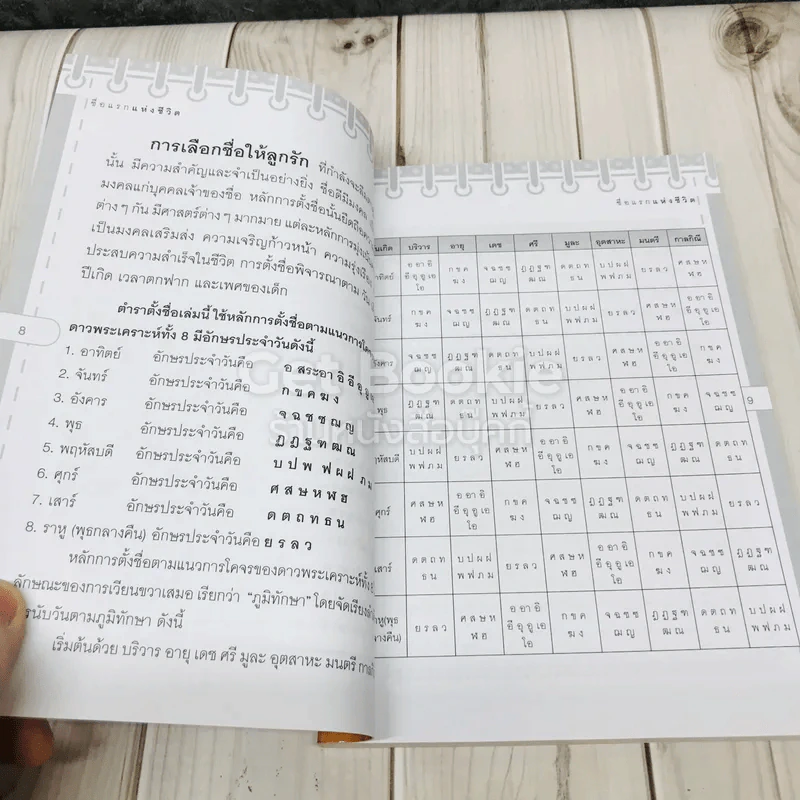 ชื่อแรกแห่งชีวิต
การเลือกชื่อให้ลูกรัก ที่กำลังจะ
นั้น มีความสำคัญและจำเป็นอย่างยิ่ง ชื่อดีมีมงคล
มงคลแก่บุคคลเจ้าของชื่อ หลักการตั้งชื่อนั้นยึดถือ
ต่างๆ กัน มีศาสตร์ต่างๆ มากมาย แต่ละหลักการมุ่ง
เป็นมงคลเสริมส่ง ความเจริญก้าวหน้า ความรุ่งเรือง
ประสบความสำเร็จในชีวิต การตั้งชื่อพิจารณาตาม วัน
ปีเกิด เวลาตกฟาก และเพศของเด็ก
ตำราตั้งชื่อเล่มนี้ ใช้หลักการตั้งชื่อตามแนวการโคจร
ดาวพระเคราะห์ทั้ง 8 มีอักษรประจำวันดังนี้
8
1. อาทิตย์ อักษรประจำวันคือ อ สระอา อิ อี อุ
2. จันทร์ อักษรประจำวันคือ ก ข ค ฆ ง
3. อังคาร อักษรประจำวันคือ จ ฉ ช ซ ฌ ญ
4. พุธ อักษรประจำวันคือ ฎ ฏ ฐ ฑ ฒ ณ
5. พฤหัสบดี อักษรประจำวันคือ บ ป ผ ฝ พ ฟ ภ ม
6. ศุกร์ อักษรประจำวันคือ ศ ส ษ ห ฬ ฮ
7. เสาร์ อักษรประจำวันคือ ด ต ถ ท ธ น
8. ราหู (พุธกลางคืน) อักษรประจำวันคือ ย ร ล ว
หลักการตั้งชื่อตามแนวการโคจรของดาวพระเคราะห์ทั้ง
ลักษณะของการเวียนขวาเสมอ เรียกว่า "ภูมิทักษา" โดยจัดเรียง
รนับวันตามภูมิทักษา ดังนี้
เริ่มต้นด้วย บริวาร อายุ เดช ศรี มูละ อุตสาหะ มนตรี
ชื่อแรกแห่งชีวิต
นเกิด บริวาร อายุ เดช ศรี มูละ อุตสาหะ มนตรี กาลกิณี
ทิตย์ อ อา อิ อี อุ อู เอ โอ กขค ฆง จฉชซ ฌญ ฎฏฐฑ ฒณ ดตถท ธน บปผฝ พฟภม ยรลว ศสษห ฬฮ
จันทร์ กขค ฆง จฉชซ ฌญ ฎฏฐฑ ฒณ ดตถท ธน บปผฝ พฟภม ยรลว ศสษห ฬฮ อ อา อิ อี อุ อู เอ โอ
ังคาร จฉชซ ฌญ ฎฏฐฑ ฒณ ดตถท ธน บปผฝ พฟภม ยรลว ศสษห ฬฮ อ อา อิ อี อุ อู เอ โอ กขค ฆง
พุธ ฎฏฐฑ ฒณ ดตถท ธน บปผฝ พฟภม ยรลว ศสษห ฬฮ อ อา อิ อี อุ อู เอ โอ กขค ฆง จฉชซ ฌญ
9
ฤหัสบดี บปผฝ พฟภม ยรลว ศสษห ฬฮ อ อา อิ อี อุ อู เอ โอ กขค ฆง จฉชซ ฌญ ฎฏฐฑ ฒณ ดตถท ธน
ศุกร์ ศสษห ฬฮ อ อา อิ อี อุ อู เอ โอ กขค ฆง จฉชซ ฌญ ฎฏฐฑ ฒณ ดตถท ธน บปผฝ พฟภม ยรลว
เสาร์ ดตถท ธน บปผฝ พฟภม ยรลว ศสษห ฬฮ อ อา อิ อี อุ อู เอ โอ กขค ฆง จฉชซ ฌญ ฎฏฐฑ ฒณ
าหู(พุธ กลางคืน) ยรลว ศสษห ฬฮ อ อา อิ อี อุ อู เอ โอ กขค ฆง จฉชซ ฌญ ฎฏฐฑ ฒณ ดตถท ธน บปผฝ พฟภม
Get Bookie
ร้านหนังสือบุ๊คกี้